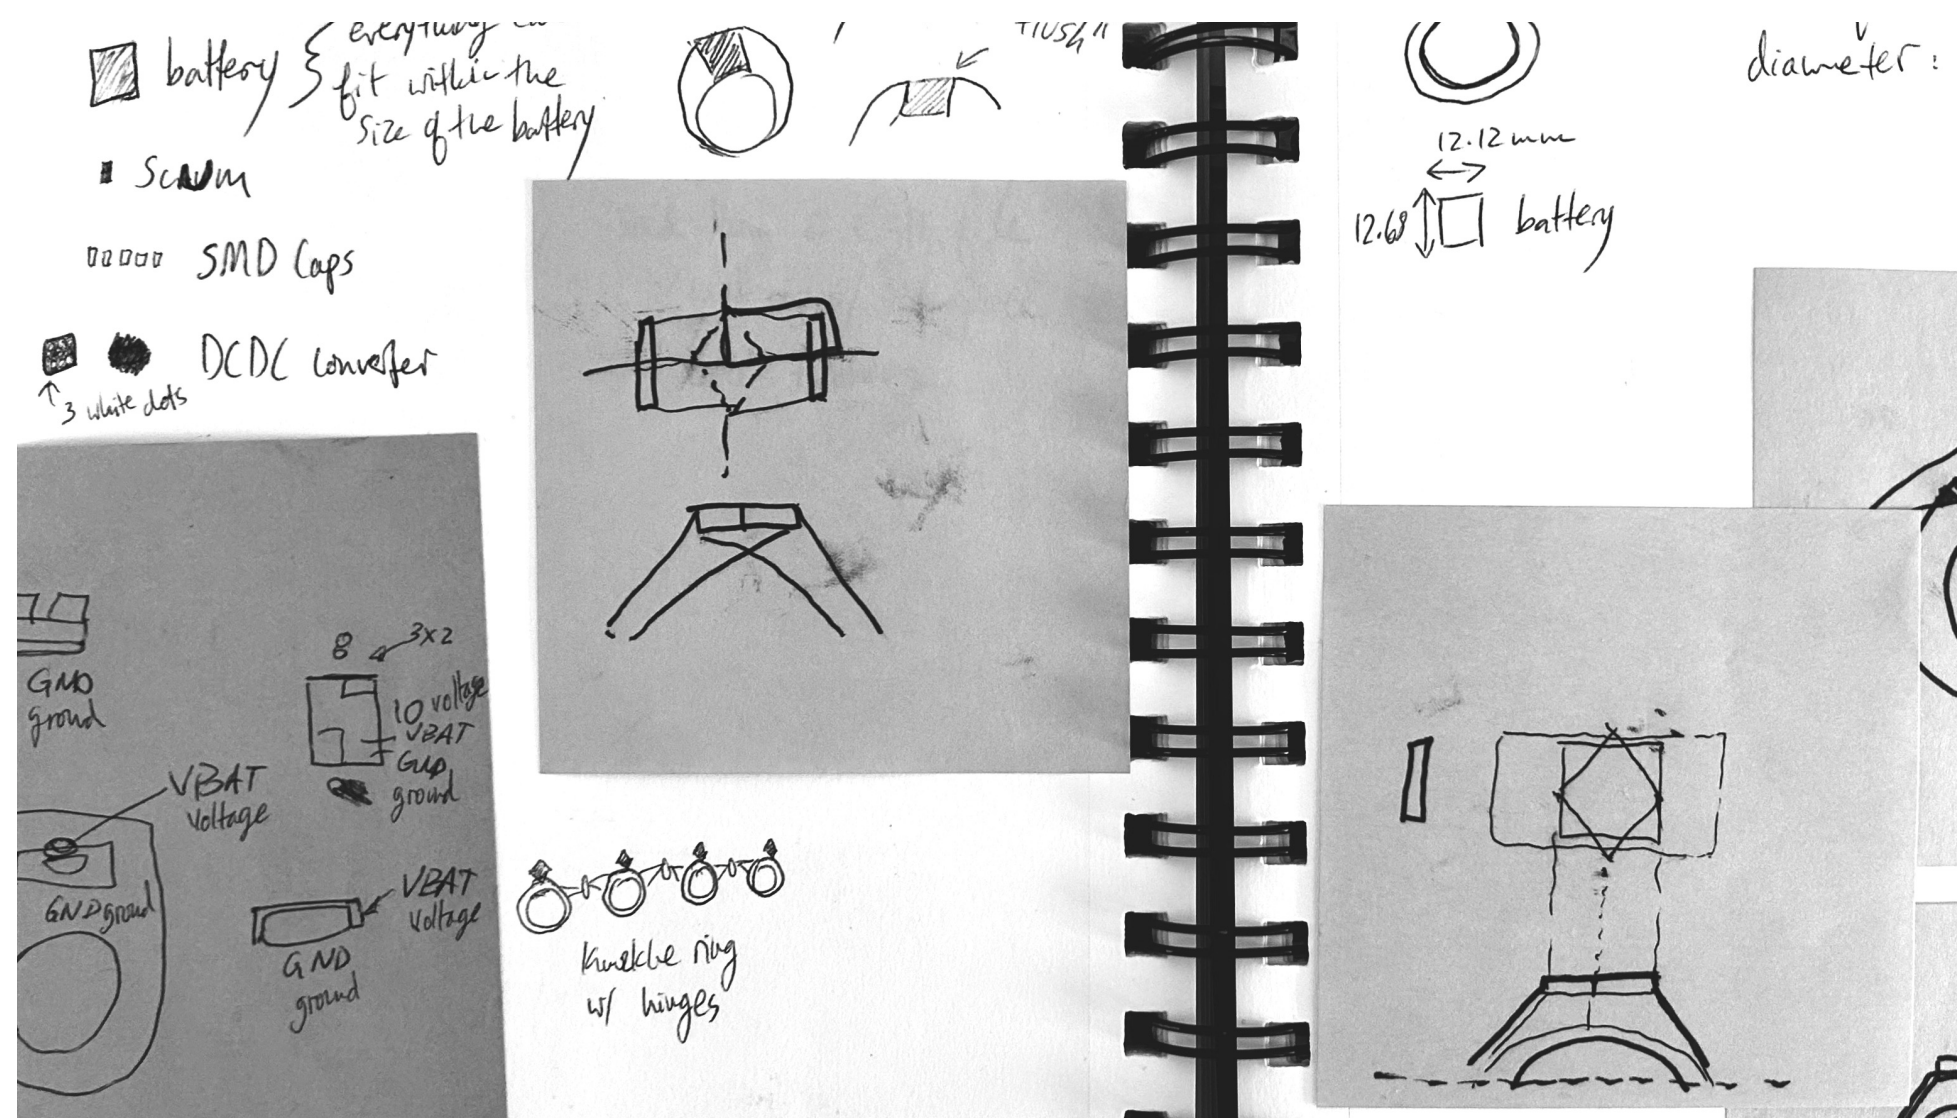 battery
everything
fit within the
size of the battery
flush
SMD Caps
DCDC converter
3 white dots
GND
ground
8
3x2
IO voltage
VBAT
GND
ground
VBAT
Voltage
GND ground
VBAT
voltage
GND
ground
w/ hinges
diameter:
12.12 mm
12.68
battery